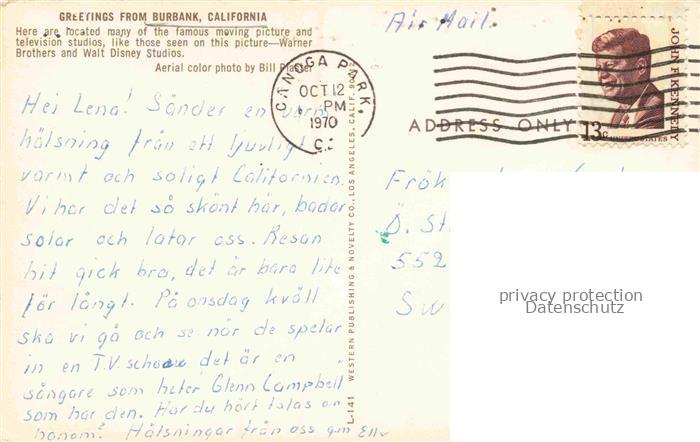 GREETINGS FROM BURBANK, CALIFORNIA
Here are located many of the famous moving picture and
television studios, like those seen on this picture—Warner
Brothers and Walt Disney Studios.
Aerial color photo by Bill
Air Mail.
CANOGA PARK
OCT 12
PM
1970
JOHN F. KENNEDY
13c
UNITED STATES
ADDRESS ONLY
WESTERN PUBLISHING & NOVELTY CO., LOS ANGELES, CALIF.
L-141
Hej Lena! Sänder en varm
hälsning från ett ljuvligt
varmt och soligt Californien.
Vi har det så skönt här, badar
solar och latar oss. Resan
hit gick bra, det är bara lite
för långt. På onsdag kväll
ska vi gå och se när de spelar
in en T.V. schow det är en
sångare som heter Glenn Campbell
som har den. Har du hört talas om
honom? Hälsningar från oss gm
Frök
Ö. St.
552
Sw
privacy protection
Datenschutz